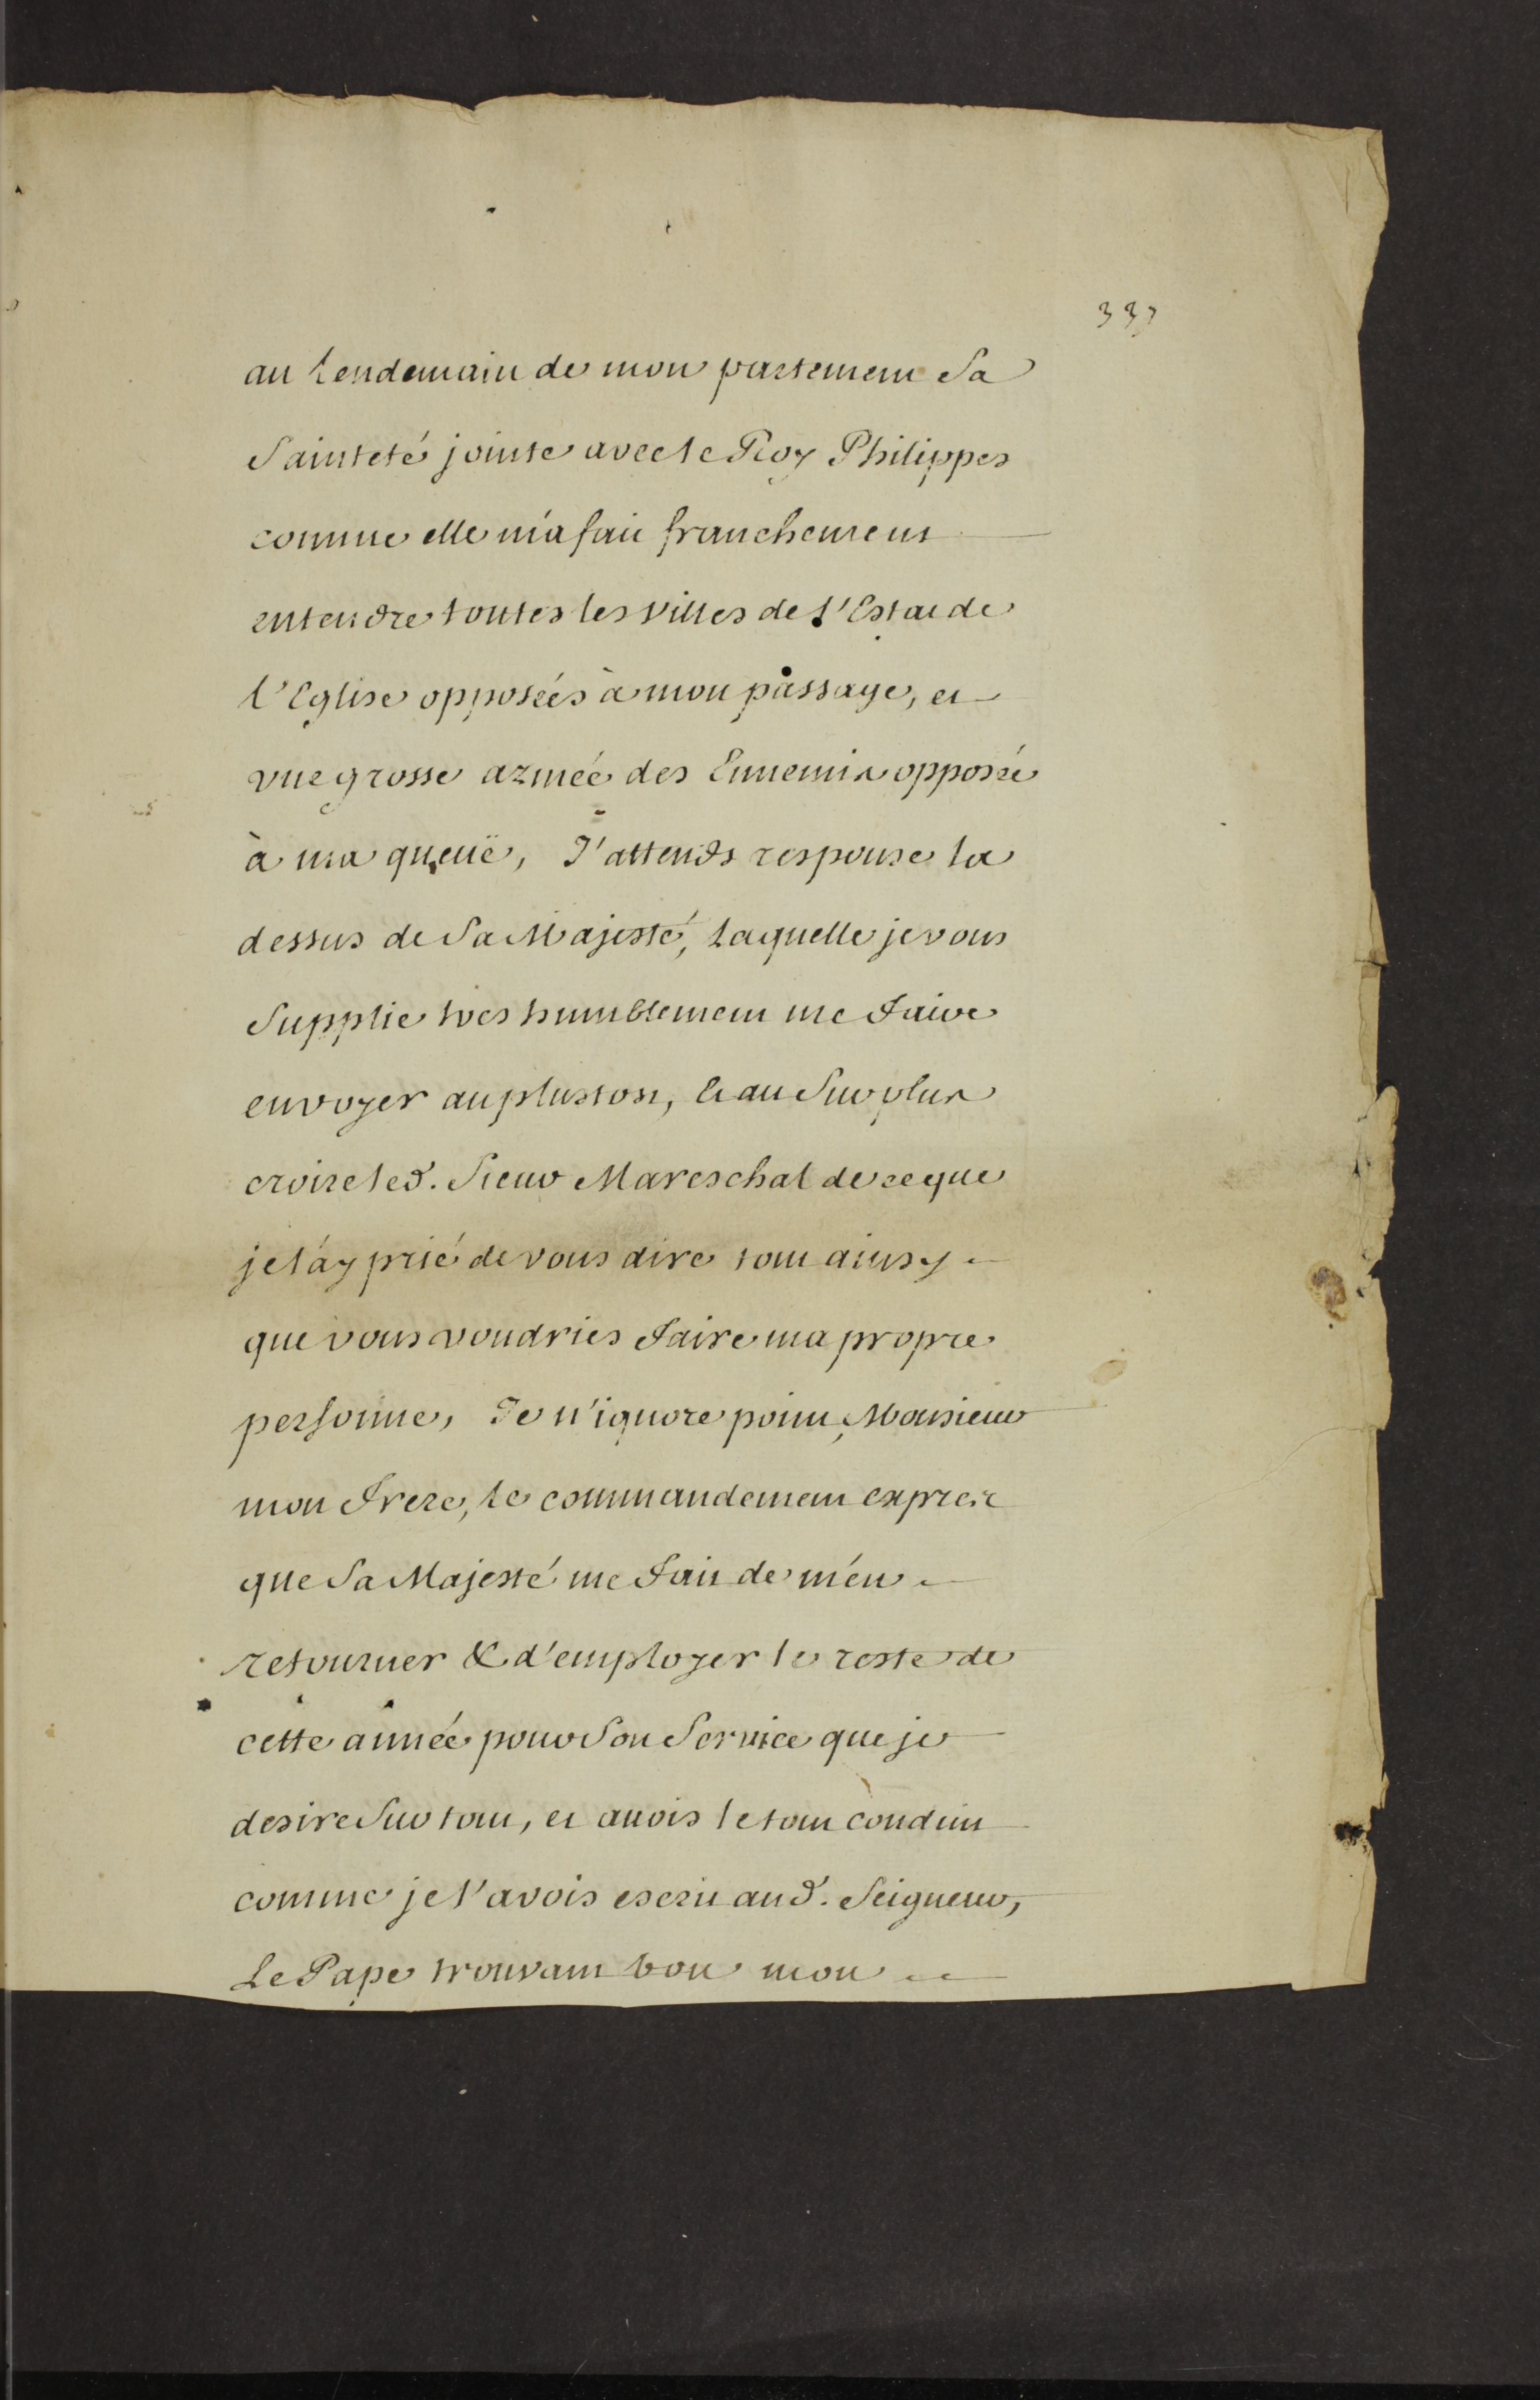 337
au Lendemain de mon partement Sa
Sainteté jointe avec le Roy Philippes
comme elle m'a fait franchement
entendre toutes les Villes de l'Estat de
l'Eglise opposées à mon passage, et
vne grosse armée des Ennemis opposée
à ma queuë, J'attends response la
dessus de Sa Majesté, Laquelle je vous
Supplie tres humblement me Faire
envoyer au plustost, Et au Surplus
croire led. Sieur Mareschal de ce que
je l'ay prié de vous dire tout ainsy
que vous voudries Faire ma propre
personne, Je n'ignore point, Monsieur
mon Frere, le commandement exprex
que Sa Majesté me Fait de m'en
retourner & d'employer le reste de
cette année pour Son Service que je
desire Sur tout, et auois le tout conduit
comme je l'avois escrit aud. Seigneur,
Le Pape trouvant bon mon